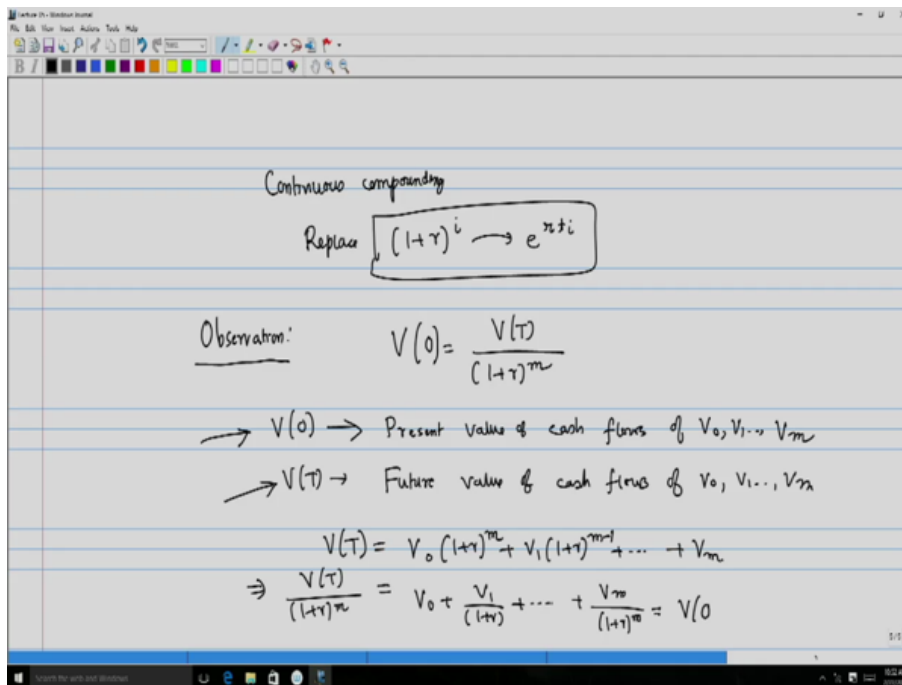 File Edit View Insert Actions Tools Help
B I
Continuous compounding
Replace (1+r)^i → e^{rt_i}
Observation: V(0) = V(T) / (1+r)^m
→ V(0) → Present value of cash flows of V_0, V_1..., V_m
→ V(T) → Future value of cash flows of V_0, V_1..., V_m
V(T) = V_0 (1+r)^m + V_1 (1+r)^{m-1} + ... + V_m
⇒ V(T) / (1+r)^m = V_0 + V_1 / (1+r) + ... + V_m / (1+r)^m = V(0
5/5
Search the web and Windows